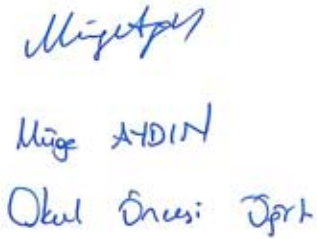 Müge AYDIN
Okul Öncesi Öğrt